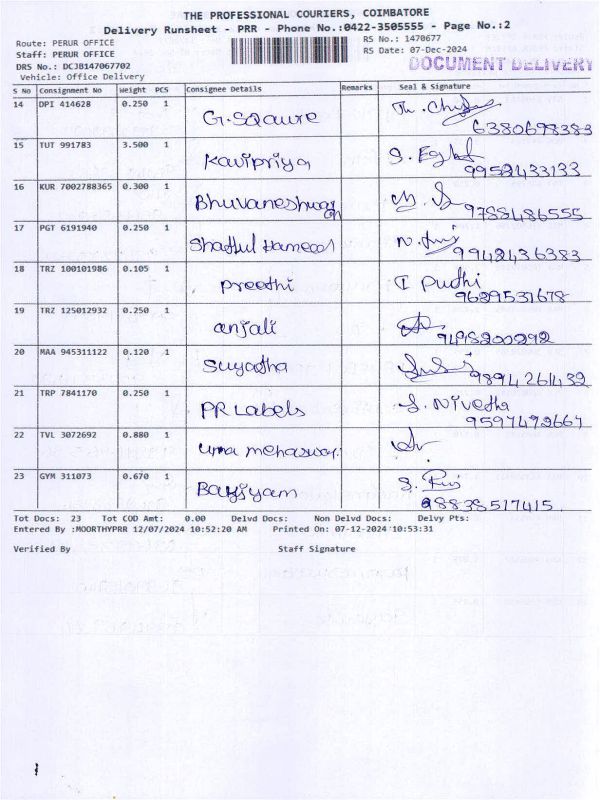 THE PROFESSIONAL COURIERS, COIMBATORE
Delivery Runsheet - PRR - Phone No.:0422-3505555 - Page No.:2
Route: PERUR OFFICE
Staff: PERUR OFFICE
DRS No.: DCJB147067702
Vehicle: Office Delivery
RS No.: 1470677
RS Date: 07-Dec-2024
DOCUMENT DELIVERY
S No Consignment No Weight PCS Consignee Details Remarks Seal & Signature
14 DPI 414628 0.250 1 G.SQaure
6380698383
15 TUT 991783 3.500 1 Kavipriya
9952433133
16 KUR 7002788365 0.300 1 Bhuvaneshwari
9788486555
17 PGT 6191940 0.250 1 Shathul Hameed
9942436383
18 TRZ 100101986 0.105 1 Preethi
9629531678
19 TRZ 125012932 0.250 1 anjali
20 MAA 945311122 0.120 1 Suyatha
9894261432
21 TRP 7841170 0.250 1 PR Labels S. Nivetha
9597492667
22 TVL 3072692 0.880 1 uma mehaswari
23 GYM 311073 0.670 1
98838517415
Tot Docs: 23 Tot COD Amt: 0.00 Delvd Docs: Non Delvd Docs: Delvy Pts:
Entered By :MOORTHYPRR 12/07/2024 10:52:20 AM Printed On: 07-12-2024 10:53:31
Verified By Staff Signature